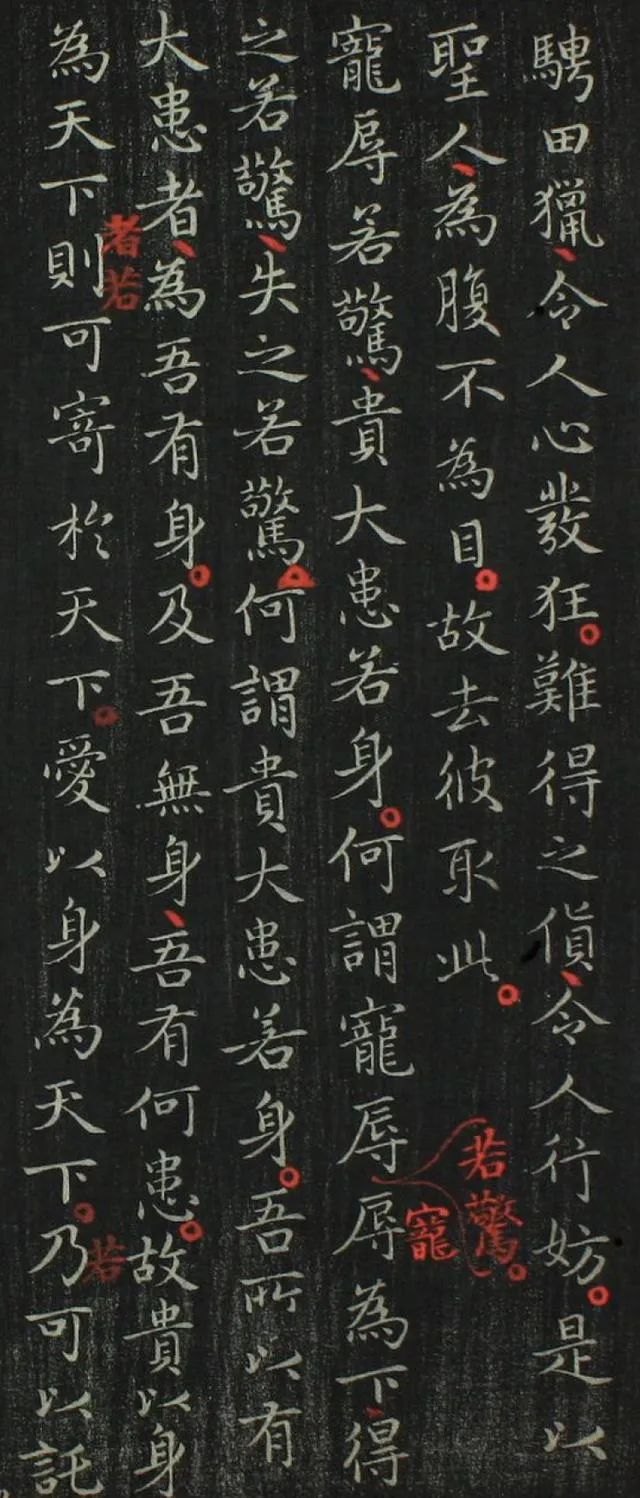 騁田獵令人心發狂難得之貨令人行妨是以
聖人為腹不為目故去彼取此
寵辱若驚貴大患若身何謂寵辱辱為下得
若驚
寵
之若驚失之若驚何謂貴大患若身吾所以有
大患者為吾有身及吾無身吾有何患故貴以身
者若
若
為天下則可寄於天下愛以身為天下乃可以託